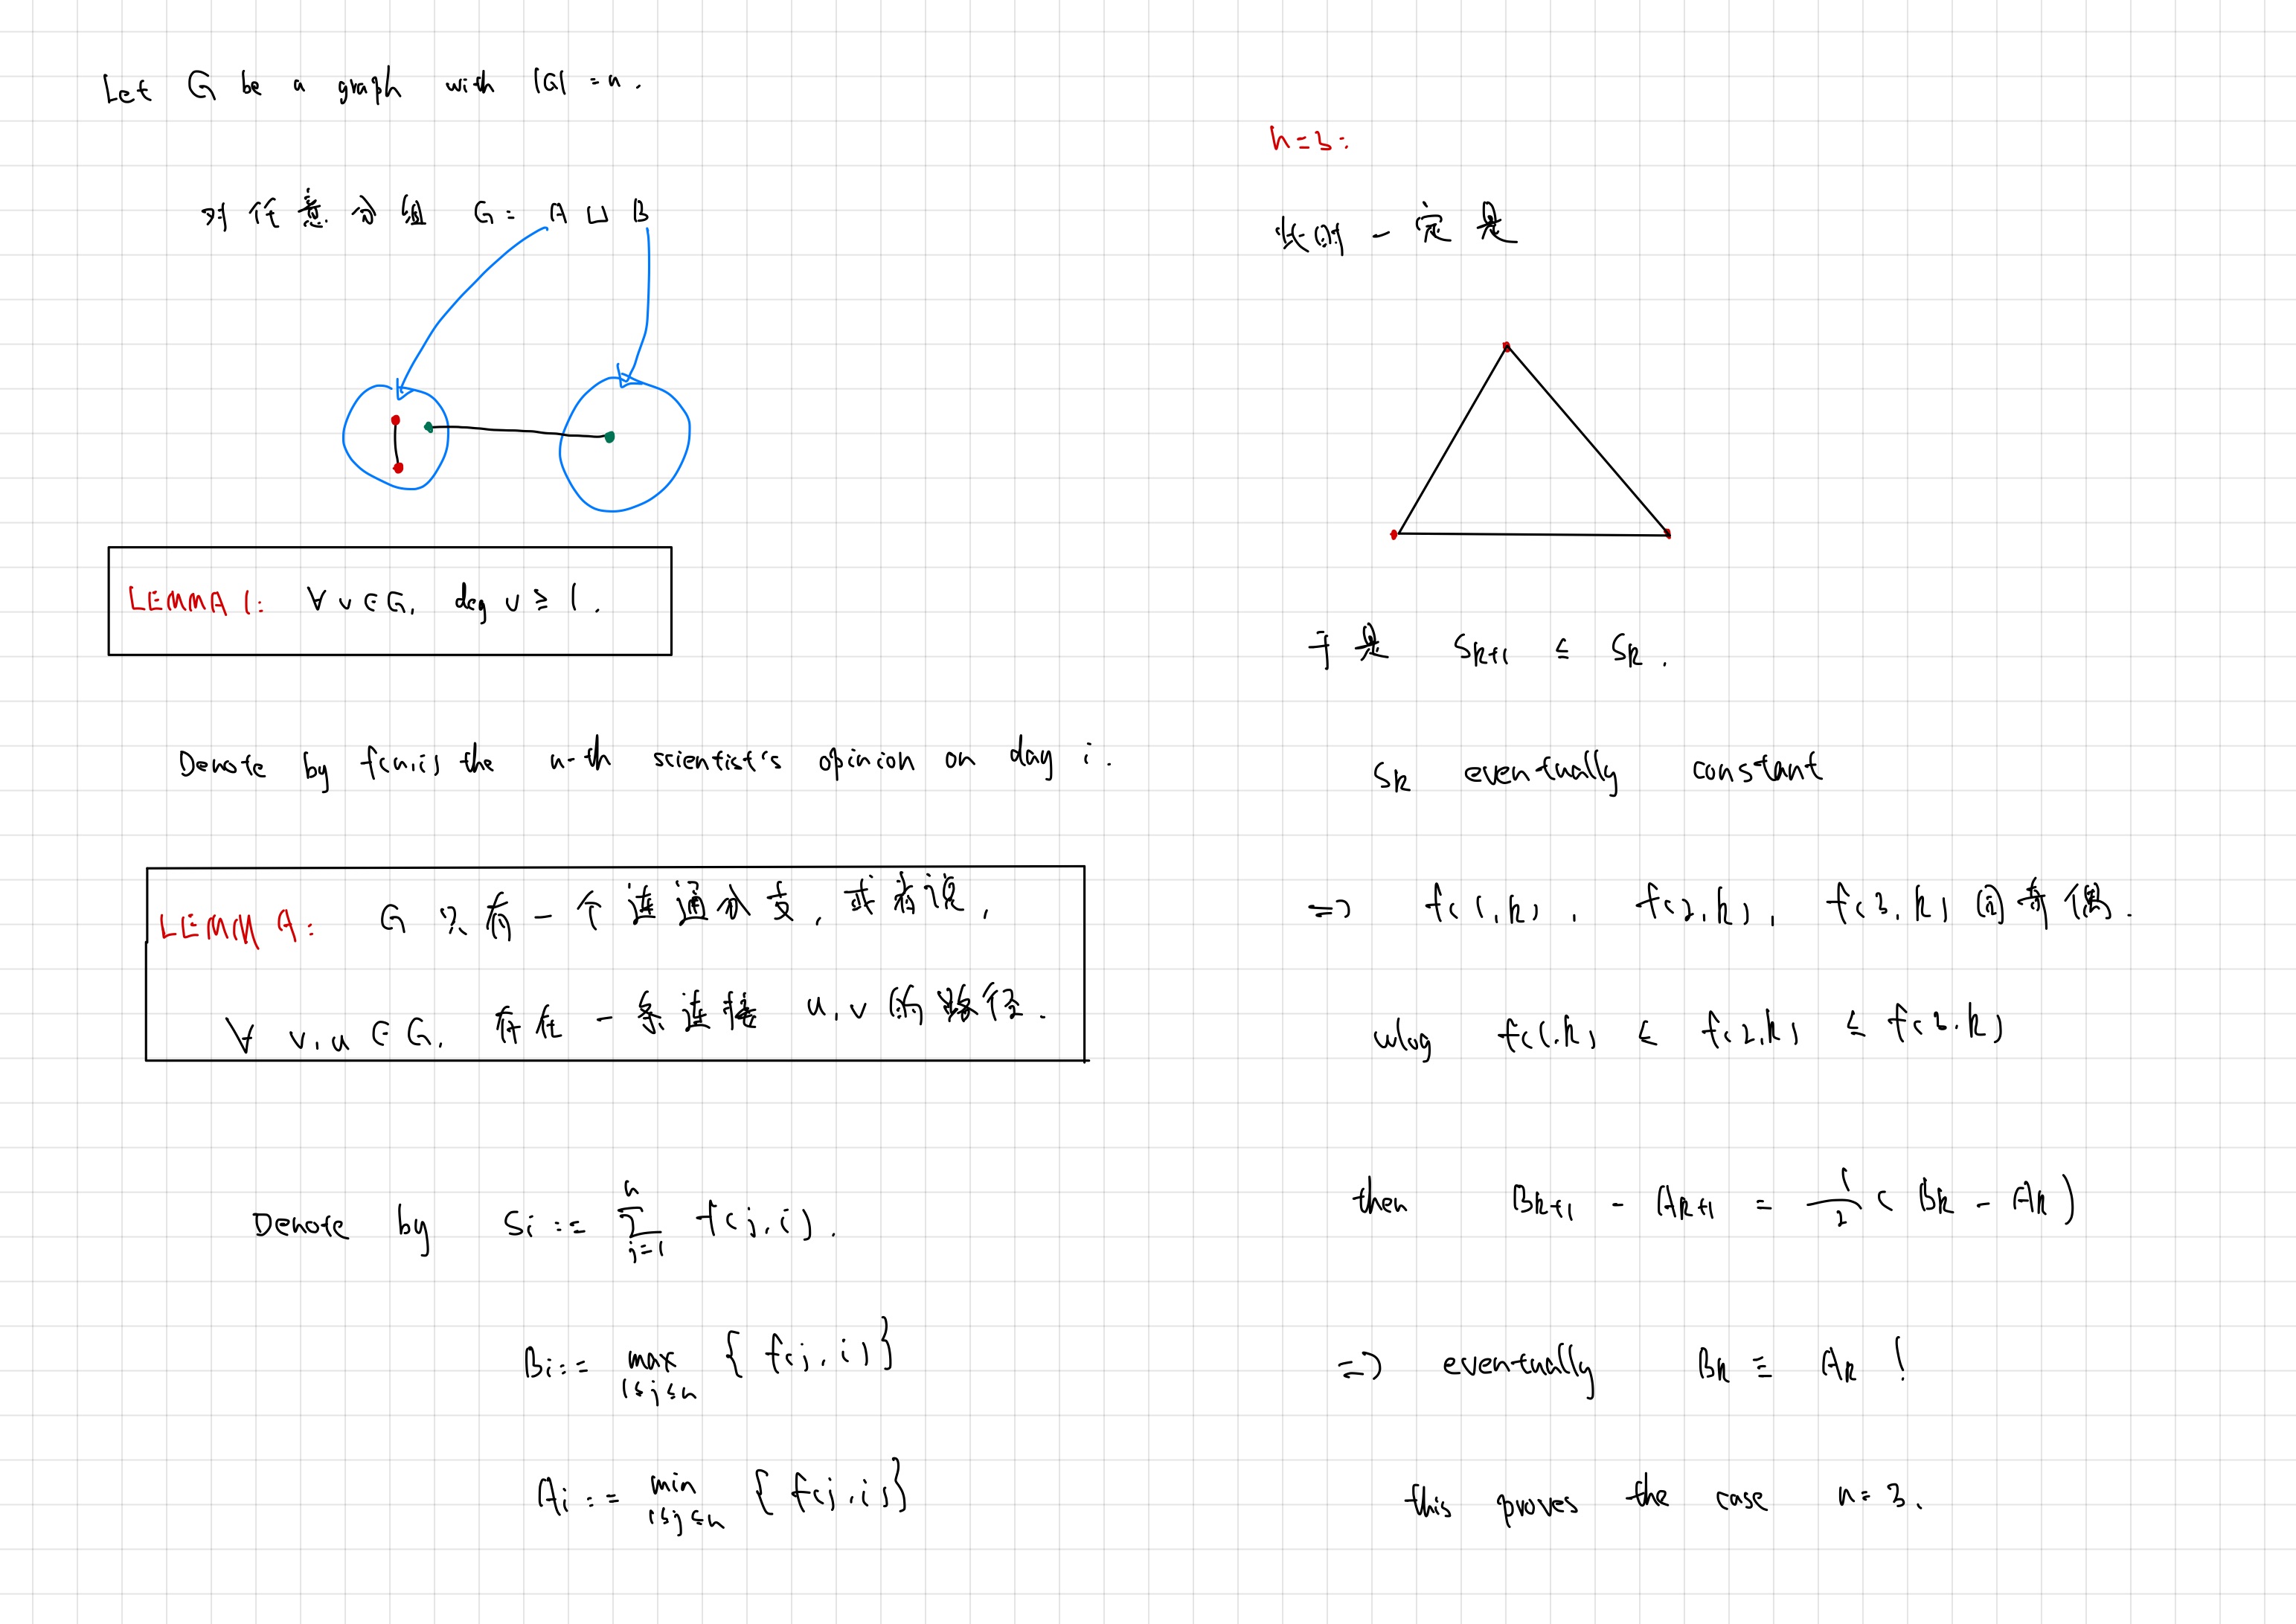 Let G be a graph with |G| = n.
对任意分组 G = A ⊔ B
LEMMA 1: ∀ v ∈ G, deg v ≥ 1.
Denote by f(n,i) the n-th scientist's opinion on day i.
LEMMA: G 只有一个连通分支, 或者说,
∀ v, u ∈ G, 存在一条连接 u, v 的路径.
Denote by Si := ∑_{j=1}^{n} f(j,i).
Bi := max_{1≤j≤n} { f(j,i) }
Ai := min_{1≤j≤n} { f(j,i) }
n=3:
一定是
于是 S_{k+1} ≤ S_k.
S_k eventually constant
=> f(1,k), f(2,k), f(3,k) 同奇偶.
wlog f(1,k) ≤ f(2,k) ≤ f(3,k)
then B_{k+1} - A_{k+1} = 1/2 ( B_k - A_k )
=> eventually B_k ≡ A_k !
this proves the case n=3.